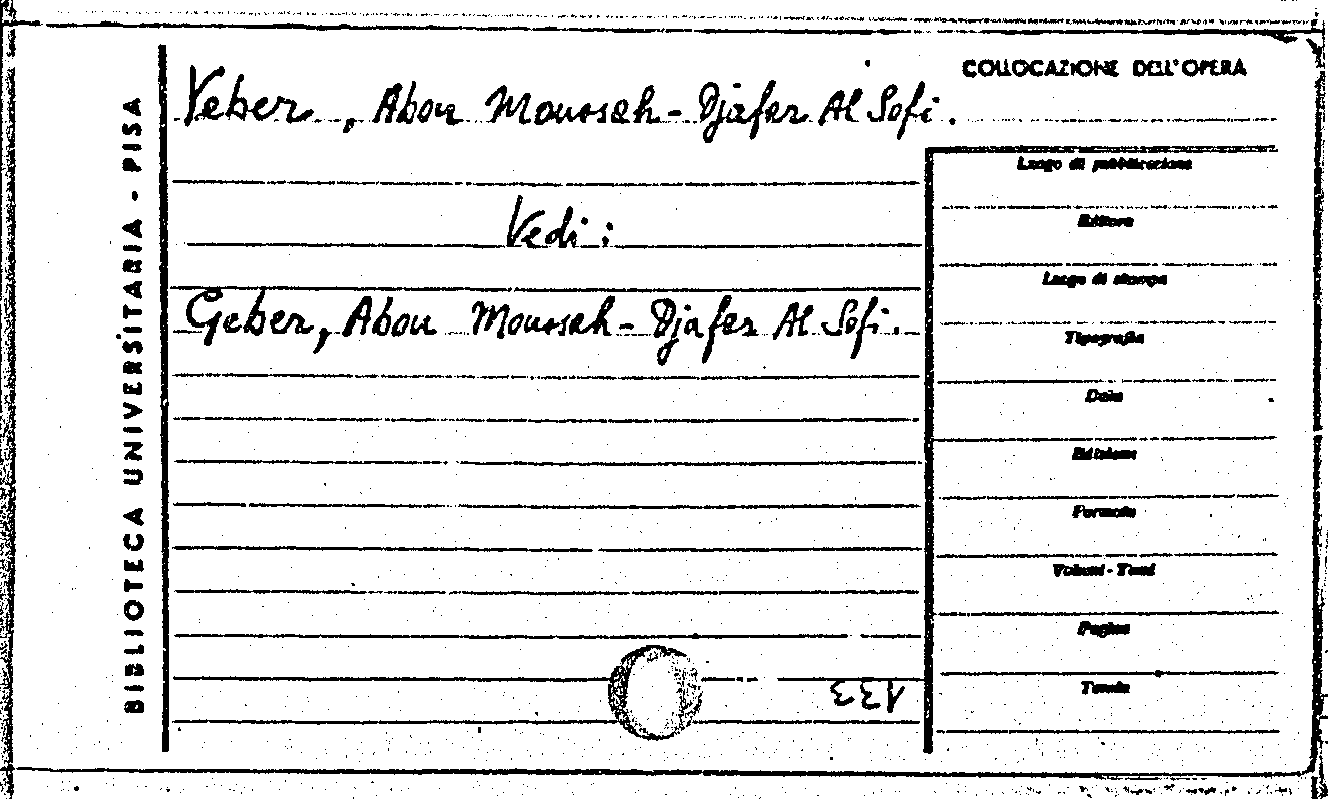 COLLOCAZIONE DELL'OPERA
Yeber, Abou Moussah-Djafer Al Sofi.
Vedi:
Geber, Abou Moussah-Djafer Al Sofi.
BIBLIOTECA UNIVERSITARIA - PISA
Luogo di pubblicazione
Editore
Luogo di stampa
Tipografia
Data
Edizione
Formato
Volumi - Tomi
Pagine
Tavole
133